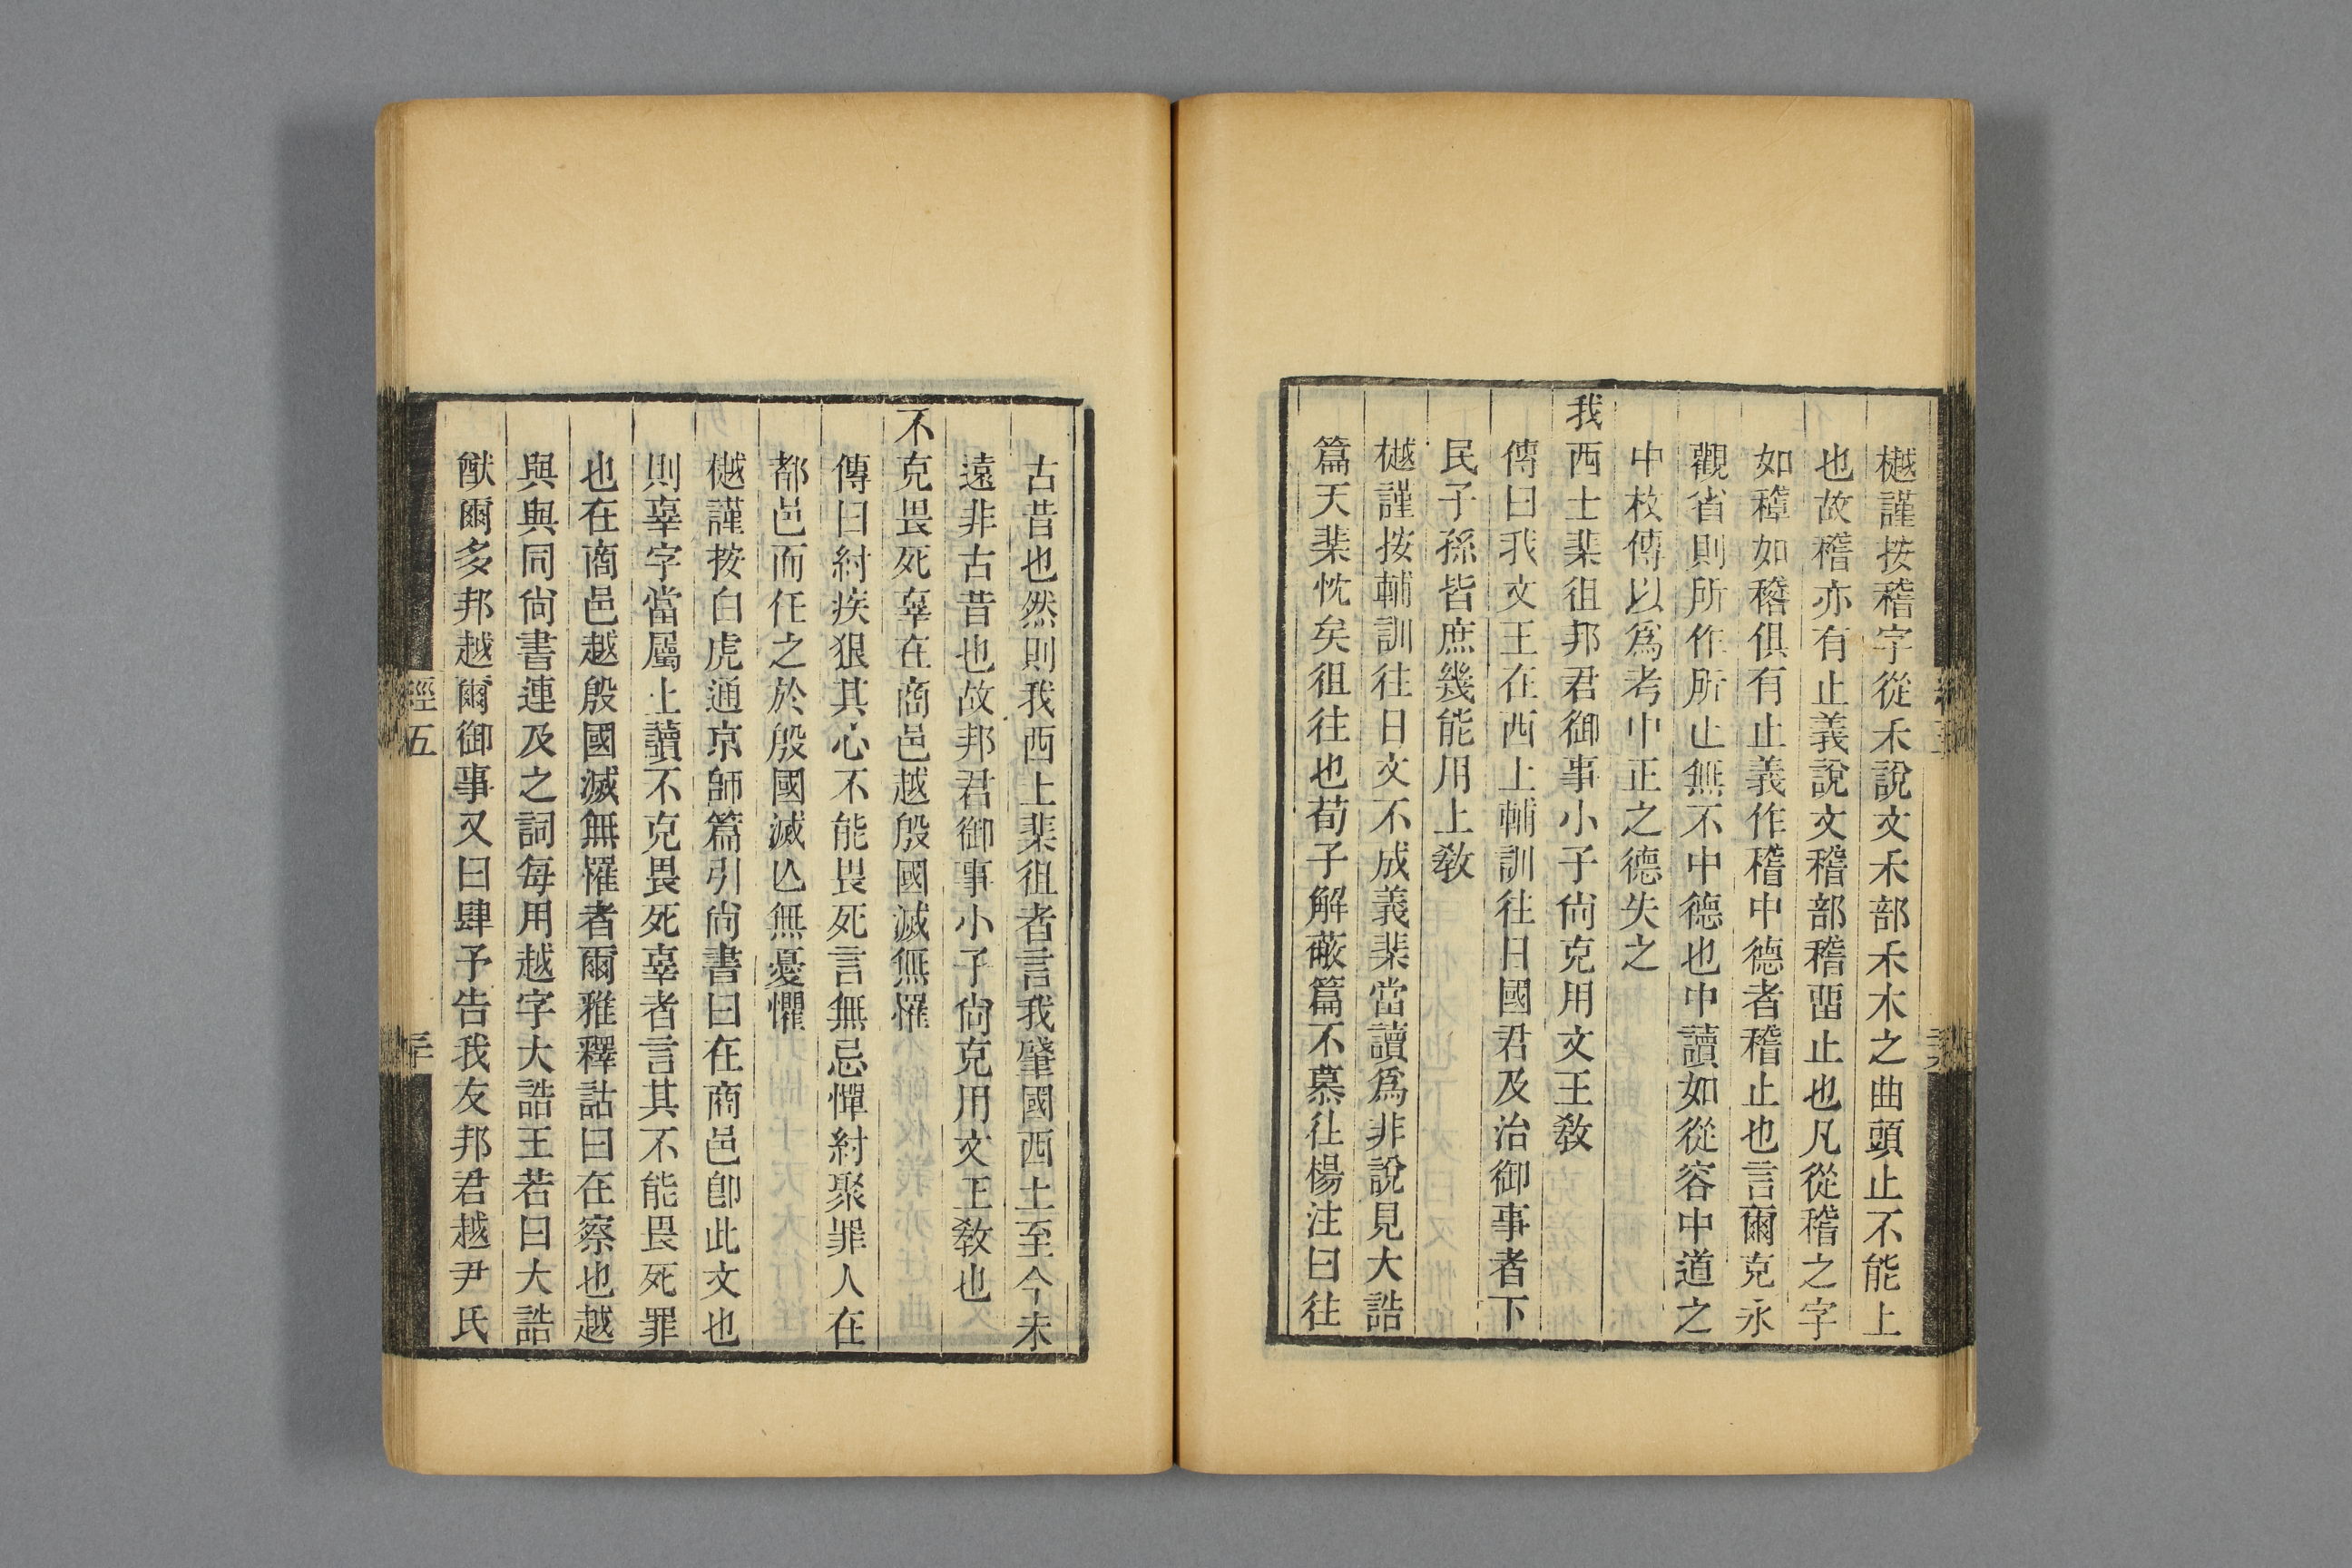 樾謹按稽字從禾說文禾部禾木之曲頭止不能上
也故稽亦有止義說文稽部稽畱止也凡從稽之字
如𥡴如𥢔俱有止義作稽中德者稽止也言爾克永
觀省則所作所止無不中德也中讀如從容中道之
中枚傳以爲考中正之德失之
我西土棐徂邦君御事小子尙克用文王敎
傳曰我文王在西土輔訓往日國君及治御事者下
民子孫皆庶幾能用上敎
樾謹按輔訓往日文不成義棐當讀爲非說見大誥
篇天棐忱矣徂往也荀子解蔽篇不慕往楊注曰往
古昔也然則我西土棐徂者言我肇國西土至今未
遠非古昔也故邦君御事小子尙克用文王敎也
不克畏死辜在商邑越殷國滅無罹
傳曰紂疾狠其心不能畏死言無忌憚紂聚罪人在
都邑而任之於殷國滅亾無憂懼
樾謹按白虎通京師篇引尙書曰在商邑卽此文也
則辜字當屬上讀不克畏死辜者言其不能畏死罪
也在商邑越殷國滅無罹者爾雅釋詁曰在察也越
與與同尙書連及之詞每用越字大誥王若曰大誥
猷爾多邦越爾御事又曰肆予告我友邦君越尹氏
經五
三十